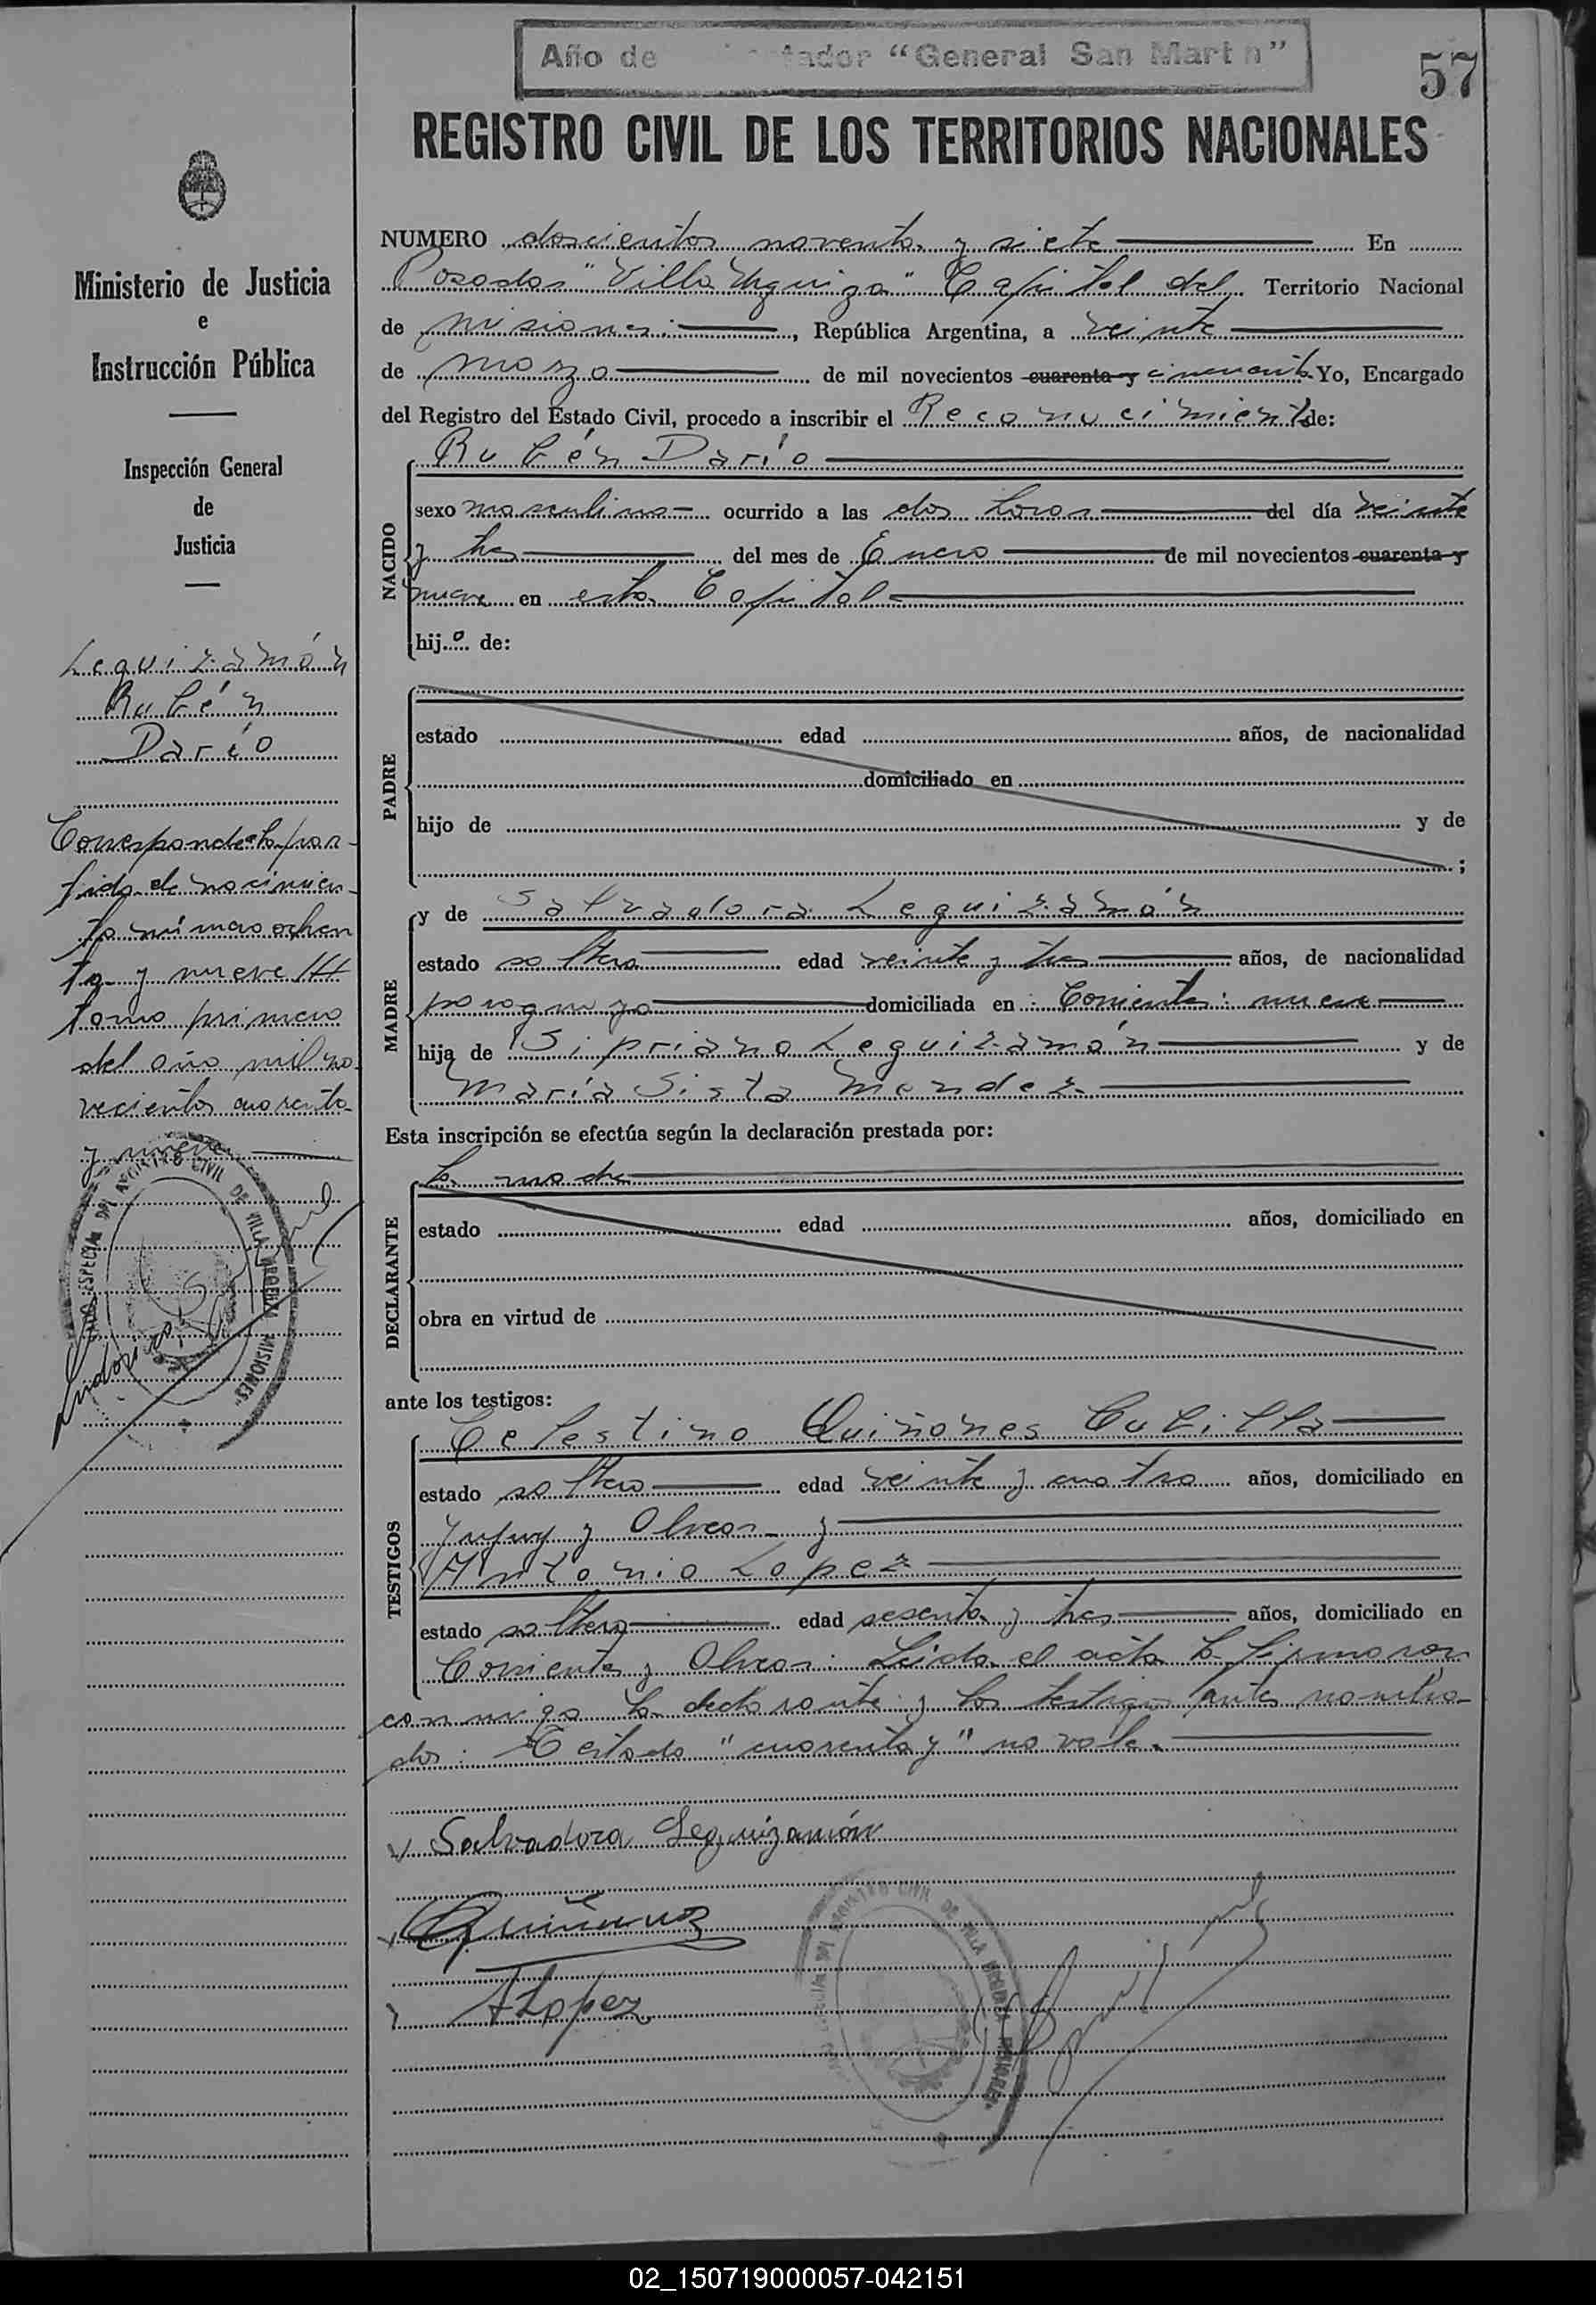 Año de tador "General San Mart n"
57
REGISTRO CIVIL DE LOS TERRITORIOS NACIONALES
Ministerio de Justicia
e
Instrucción Pública
Inspección General
de
Justicia
Leguizamón
Rubén
Darío
Corresponde a la par-
tida de nacimien-
to número ochen
ta y nueve
tomo primero
del año mil no-
vecientos cuarenta
y nueve
REGISTRO CIVIL DE VILLA URQUIZA MISIONES
NUMERO doscientos noventa y siete En
Posadas "Villa Urquiza" Capital del Territorio Nacional
de Misiones:, República Argentina, a veinte
de marzo de mil novecientos cuarenta y cincuenta Yo, Encargado
del Registro del Estado Civil, procedo a inscribir el Reconocimiento de:
NACIDO
Rubén Darío
sexo masculino ocurrido a las dos horas del día veinte
y tres del mes de Enero de mil novecientos cuarenta y
nueve en esta Capital
hijo de:
PADRE
estado edad años, de nacionalidad
domiciliado en
hijo de y de
;
MADRE
y de Salvadora Leguizamón
estado soltera edad veinte y tres años, de nacionalidad
paraguaya domiciliada en: Corrientes: nueve
hija de Sipriano Leguizamón y de
María Sista Mendez
Esta inscripción se efectúa según la declaración prestada por:
DECLARANTE
la madre
estado edad años, domiciliado en
obra en virtud de
ante los testigos:
TESTIGOS
Celestino Quiñones Cubilla
estado soltero edad veinte y cuatro años, domiciliado en
Jujuy y Olleros y
Antonio Lopez
estado soltero edad sesenta y tres años, domiciliado en
Corrientes y Leida el acta la firmaron
conmigo la declarante y los testigos antes nombra-
dos: Testado "cuarenta y" no vale.
Salvadora Leguizamón
Quiñonez
A Lopez
REGISTRO CIVIL DE VILLA URQUIZA
02_150719000057-042151